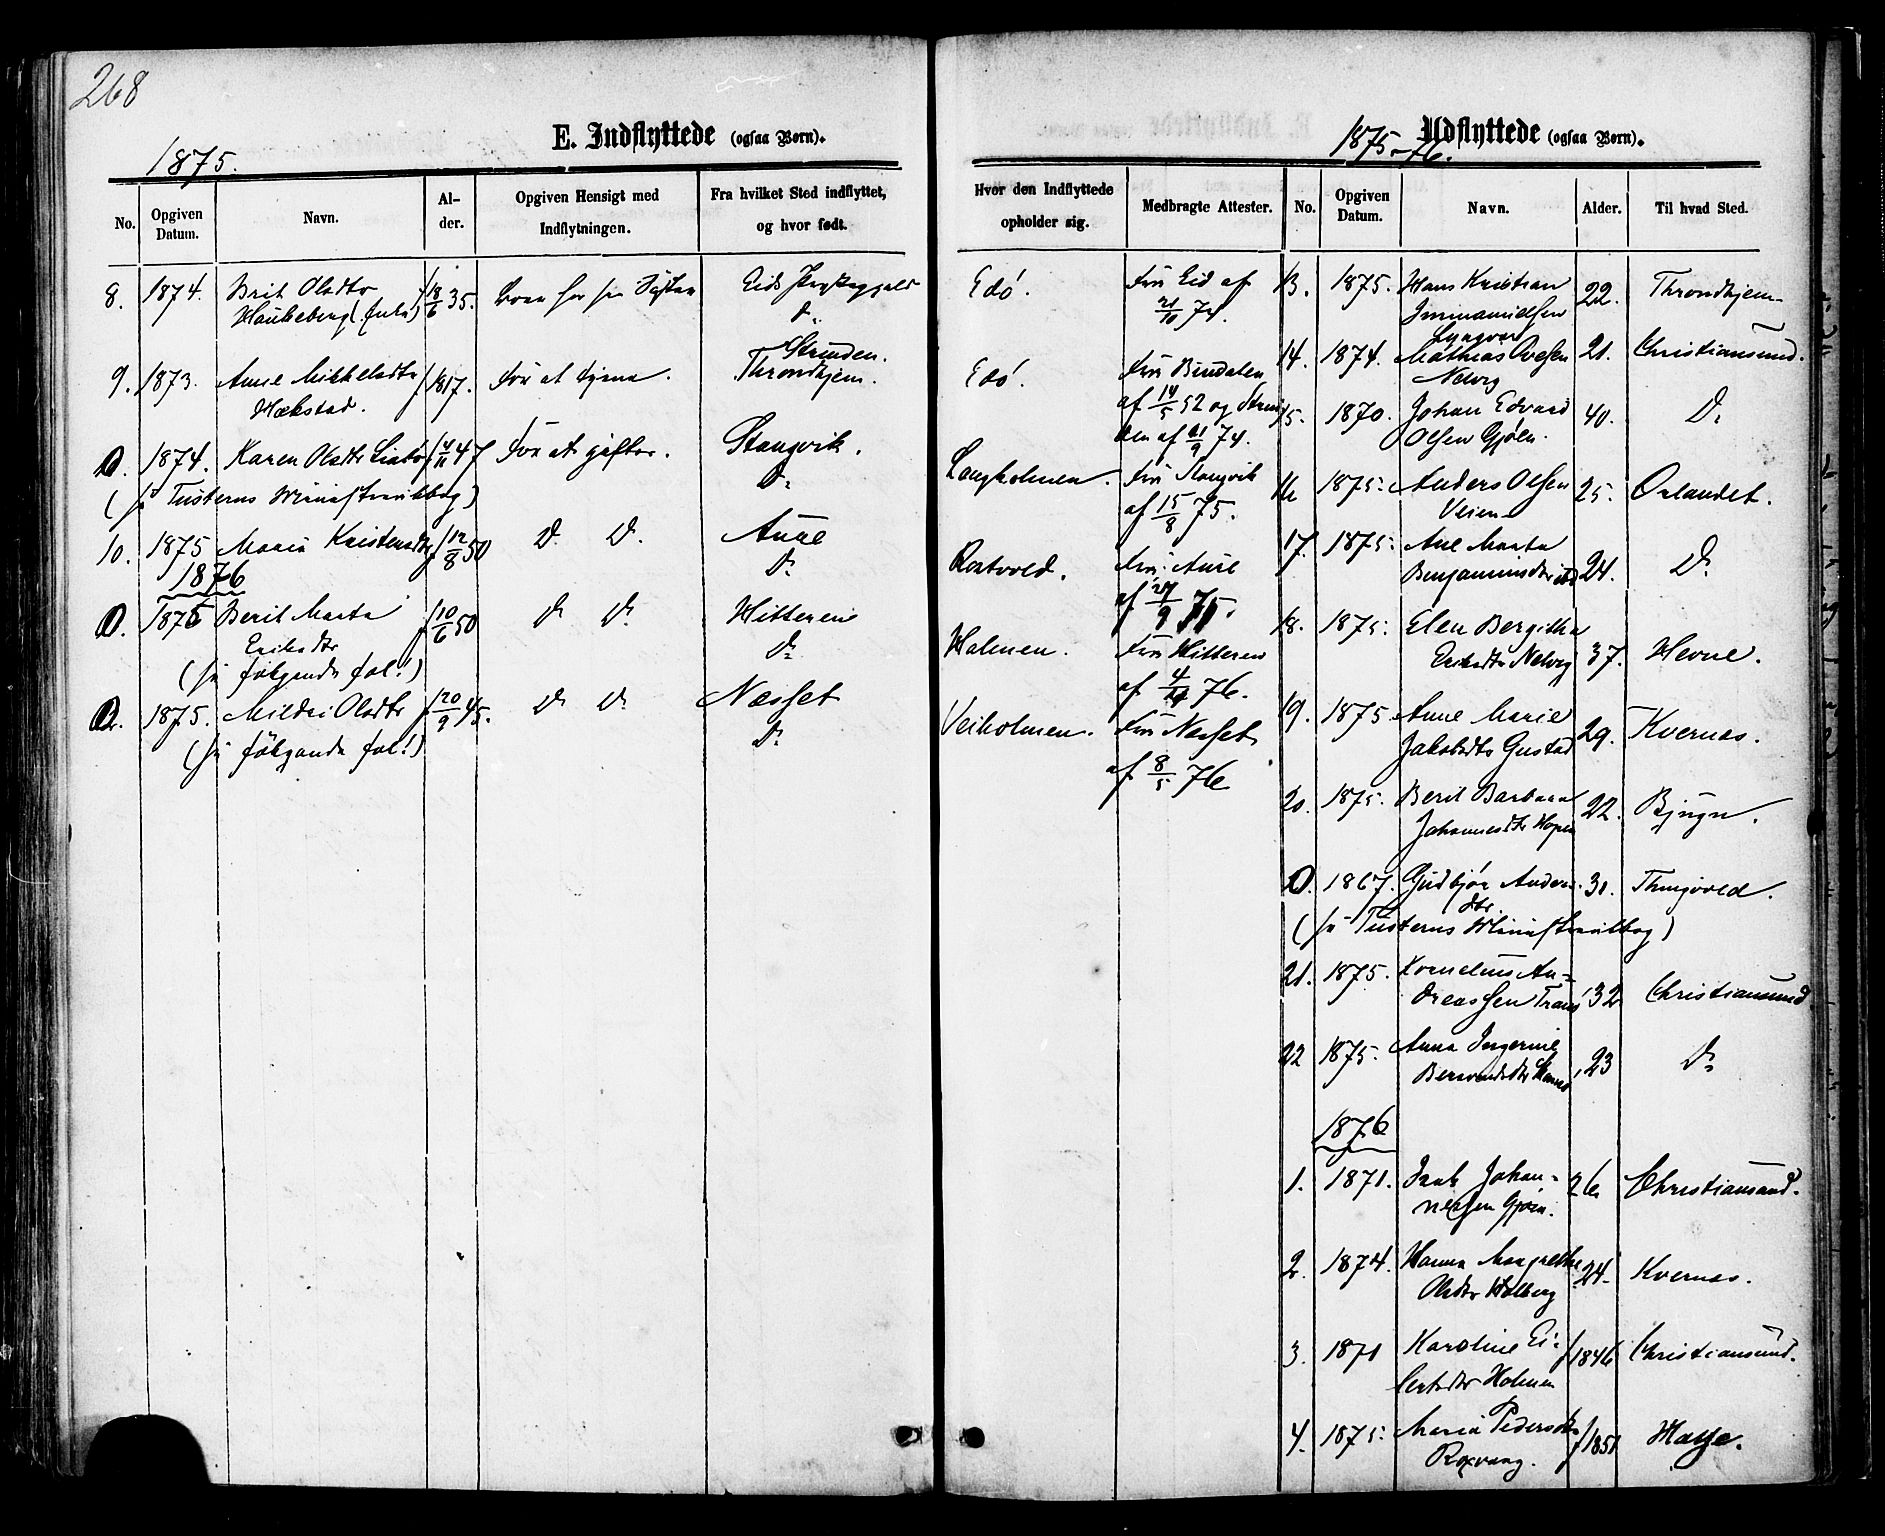 268
E. Indflyttede (ogsaa Børn).
1875.
No. Opgiven Datum. Navn. Alder. Opgiven Hensigt med Indflytningen. Fra hvilket Sted indflyttet, og hvor født. Hvor den Indflyttede opholder sig. Medbragte Attester.
8. 1874. Brit Olsdtr f 18/6 35. Eids Edö. Fra Eid af
Haukeberg 21/10 74.
Strinden.
9. 1873. Anne Mikkelsdtr f 1817. For at tjene. Throndhjem. Edö. Fra
Hækstad. af 14/5 52 og Strin
den af 21/9 74.
0. 1874. Karen Olsdtr f 4/11 47 For at giftes. Stangvik. Langholmen. Fra Stangvik
(se Tusterns Ministerialbog) D. af 15/8 75.
10. 1875 Maria Kristensdtr f 12/8 50 D. D. Aure Rostvold. Fra Aure
1876 D. af 27/9 75.
0. 1875 Berit Marta f 10/6 50 D. D. Hitteren Holmen. Fra Hitteren
Eriksdtr D. af 4/ 76.
(se følgende fol!)
0. 1875. Mildri Olsdtr f 20/9 45. D. D. Næsset Veiholmen. Fra Næsset
(se følgende fol!) D. af 8/5 76
Udflyttede (ogsaa Børn).
1875-76.
No. Opgiven Datum. Navn. Alder. Til hvad Sted.
13. 1875. Hans Kristian 22. Throndhjem
Immanuelsen
Lyngvær
14. 1874. Mathias Ovesen 21. Christiansund.
Nelvig
15. 1870. Johan Edvard 40. D.
Olsen Gjøen.
16 1875. Anders Olsen 25. Ørlandet.
Veien
17. 1875. Ane Marta 24. D.
Benjaminsdtr
18. 1875. Elen Bergitha 37. Hevne.
Eriksdtr Nelvig
19. 1875 Anne Marie 29. Kvernæs.
Jakobsdtr Gustad
20. 1875. Berit Barbara 22. Bjugn.
Johannesdtr Hopen
0. 1867. Gudbjør Anders 31. Thingvold.
dtr.
(se Tusterns Ministerialbog)
21. 1875. Kornelius An-
dreassen 32 Christiansund
22 1875. Anna Ingerine 23 D.
1876
1. 1871. Isak Johan- 26 Christiansund.
nessen Gjøen.
2. 1874. Hanna Margrethe 24 Kvernæs.
Olsdtr Hølberg
3. 1871 Karoline Ei- f 1846 Christiansund.
lertsdtr Holmen
4. 1875. Maria Pedersdtr f 1851
Roxvaag.